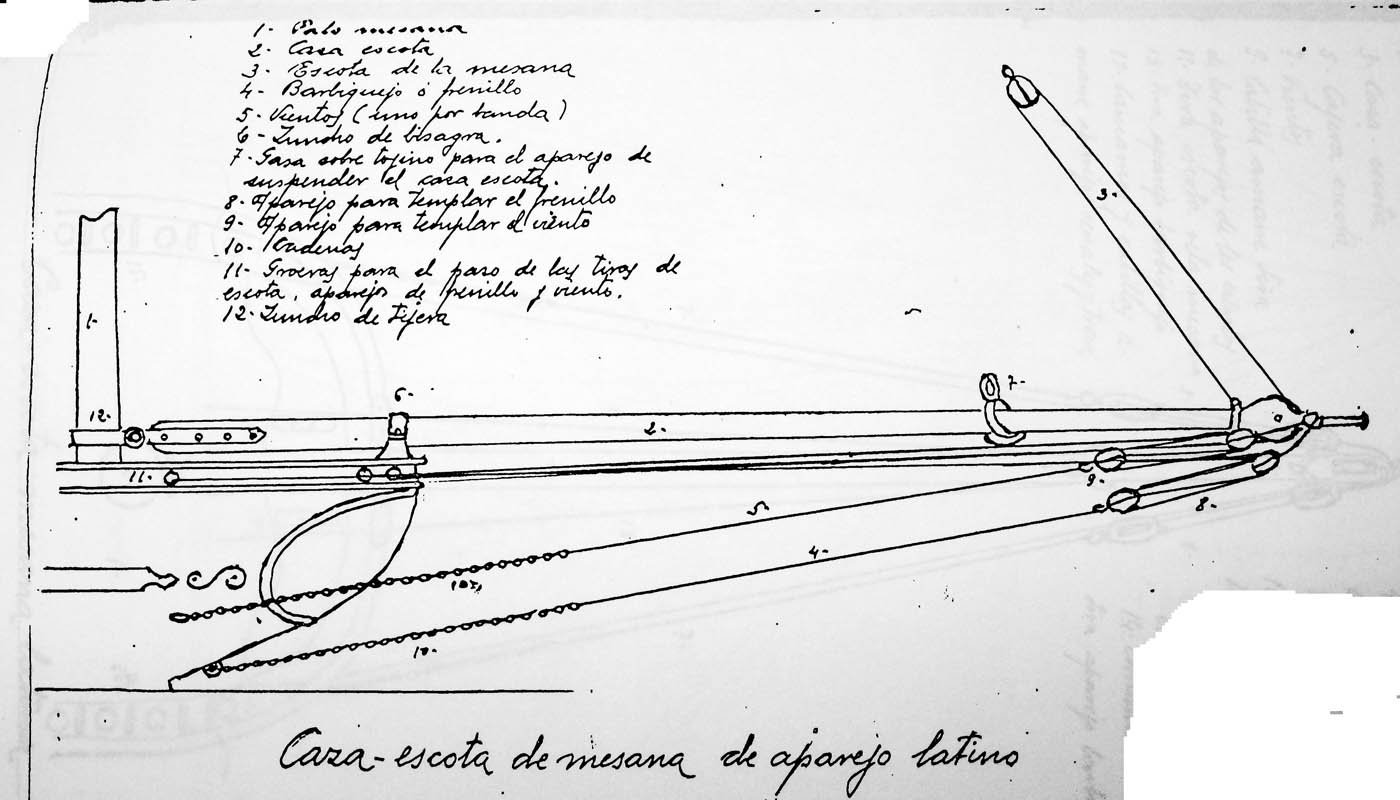 1- Palo mesana
2- Caza escota
3- Escota de la mesana
4- Barbiquejo ó frenillo
5- Vientos (uno por banda)
6- Zuncho de bisagra.
7- Gasa sobre tojino para el aparejo de
suspender el caza escota.
8- Aparejo para templar el frenillo
9- Aparejo para templar el viento
10- Cadenas
11- Groeras para el paso de las tiras de
escota, aparejos de frenillo y viento.
12- Zuncho de tijera
3-
1-
6-
7-
12-
2-
11-
9-
8-
5-
4-
10-
10-
Caza-escota de mesana de aparejo latino